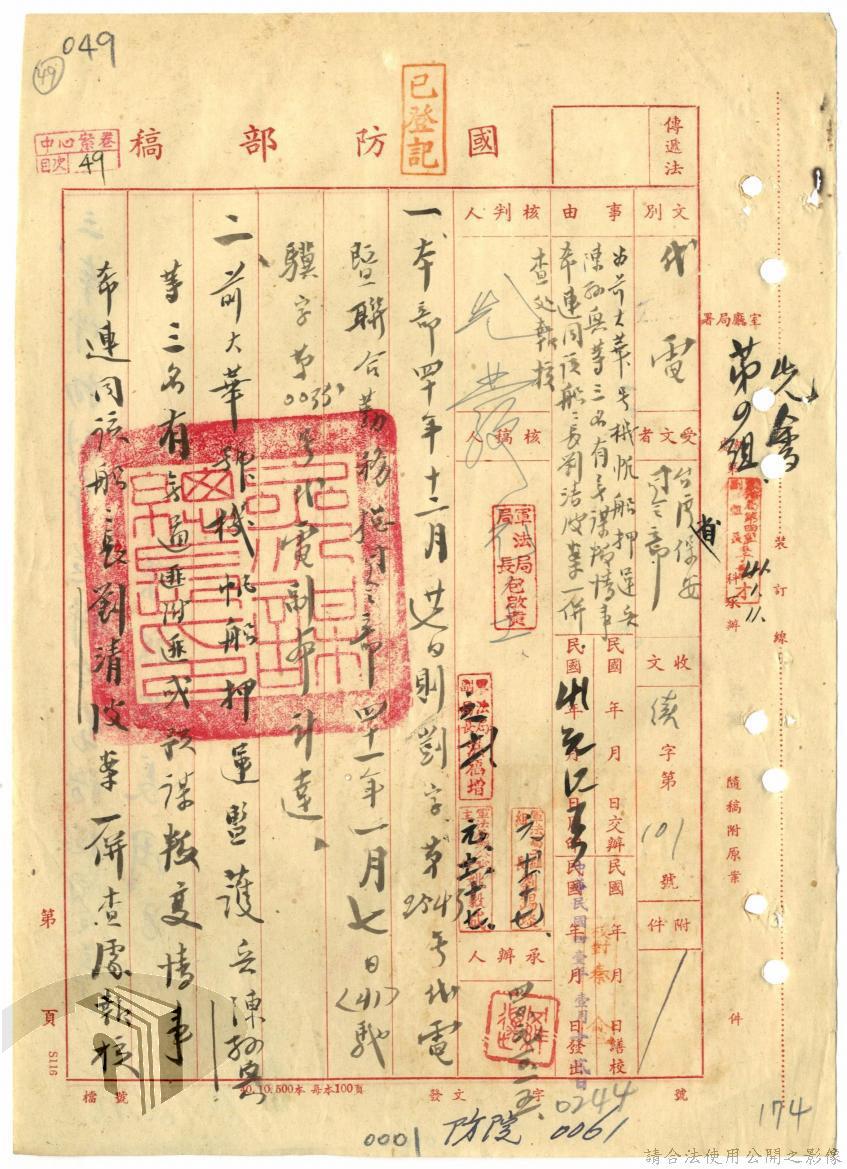 049
49
已登記
中心案卷
目次 49
國防部稿
傳遞法
文別
代電
事由
為前大華號機帆船押運兵
陳孫興等三名有無謀叛情事
希連同該船船長劉清波案一併
查處報核
核判人
受文者
台灣省保安
司令部
核稿人
軍法局
局長包啟黃
收文
字第 101 號
附件
民國 年 月 日交辦
民國 年 月 日繕校
民國 年 月 日發出
承辦人
室廳局署
先會
第四組
41.1.11.
裝訂線
隨稿附原案
件
一、本部四十年十二月廿日則劉字第2543號代電
暨聯合勤務總司令部四十一年一月七日(41)馳
驥字第0035號代電副本計達、
二、前大華號機帆船押運監護兵陳孫興
等三名有無通匪附匪或預謀叛變情事
希連同該船船長劉清波案一併查處報核
第 頁
S116
檔號
40.10.500本 每本100頁
發文 字
0244
號
0001
防院 0061
174
請合法使用公開之影像